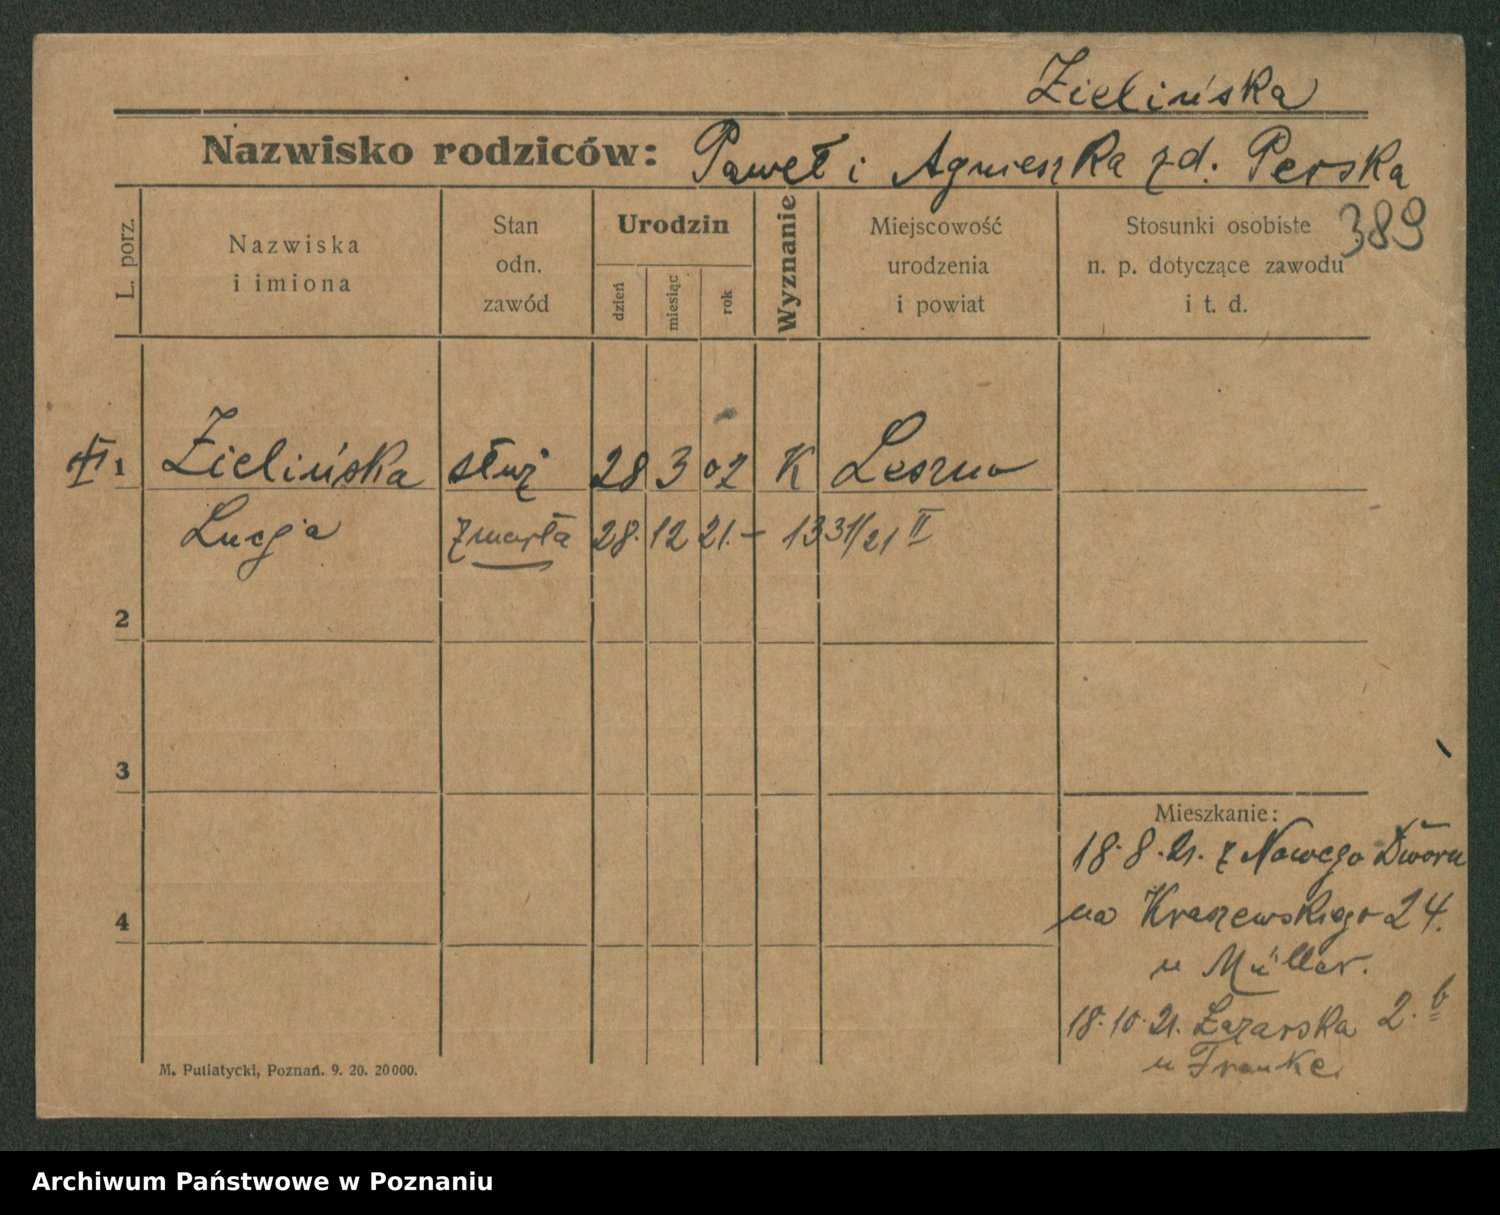 Zielińska
Nazwisko rodziców: Paweł i Agnieszka zd. Perska
389
L. porz.
Nazwiska
i imiona
Stan
odn.
zawód
Urodzin
dzień
miesiąc
rok
Wyznanie
Miejscowość
urodzenia
i powiat
Stosunki osobiste
n. p. dotyczące zawodu
i t. d.
1 Zielińska służ 28 3 02 K Leszno
Lucja zmarła 28. 12 21. – 1331/21 II
2
3
4
Mieszkanie:
18.8.21. z Nowego Dworu
na Kraszewskiego 24.
u Müller.
18.10.21. Łazarska 2.b
u Franke.
M. Putiatycki, Poznań. 9. 20. 20000.
Archiwum Państwowe w Poznaniu